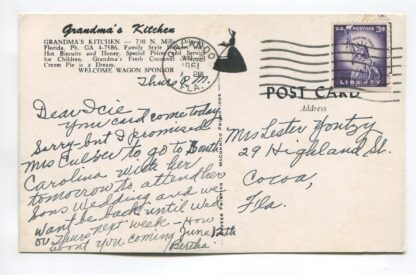 Grandma's Kitchen
GRANDMA'S KITCHEN — 730 N. Mills
Florida. Ph. GA 4-7586. Family Style
Hot Biscuits and Honey. Special Prices and Service
for Children. Grandma's Fresh Cocoanut Whipped
Cream Pie is a Dream.
WELCOME WAGON SPONSOR
1961
FLA.
U.S. POSTAGE 3¢
LIBERTY
POST CARD
Address
Thurs P.M.
Dear Icie
your card come today
Sorry - but I promised
Mrs Culver to go to South
Carolina with her
tomorrow to attend her
Sons Wedding and we
Want be back until Wed
or Thurs next week - How
about you coming June 12th
Bertha
Mrs Lester
29 Highland St.
Cocoa,
Fla.